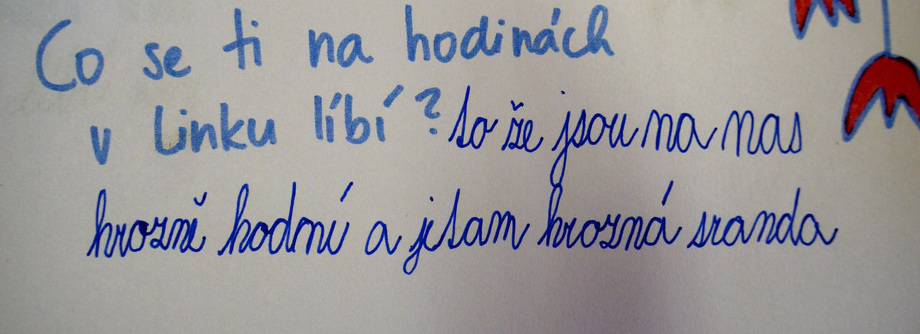 Co se ti na hodinách
v Linku líbí? to že jsou na nas
hrozně hodní a je tam hrozná sranda